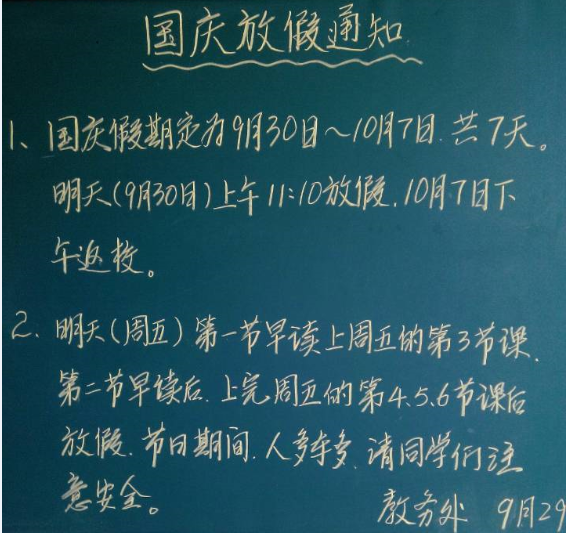 国庆放假通知
1、国庆假期定为9月30日～10月7日.共7天。
明天(9月30日)上午11:10放假.10月7日下
午返校。
2、明天(周五)第一节早读上周五的第3节课.
第二节早读后.上完周五的第4.5.6节课后
放假.节日期间.人多车多.请同学们注
意安全。
教务处 9月29